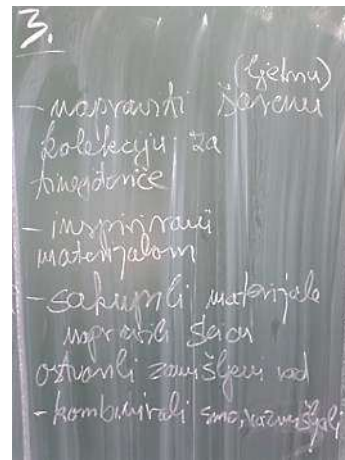 3.
(ljetnu)
- napraviti šarenu
kolekciju za
tinejdžerice
- inspirirani
materijalom
- sakupili materijale
napravili
ostvarili zamišljeni rad
- kombinirali smo, razmišljali